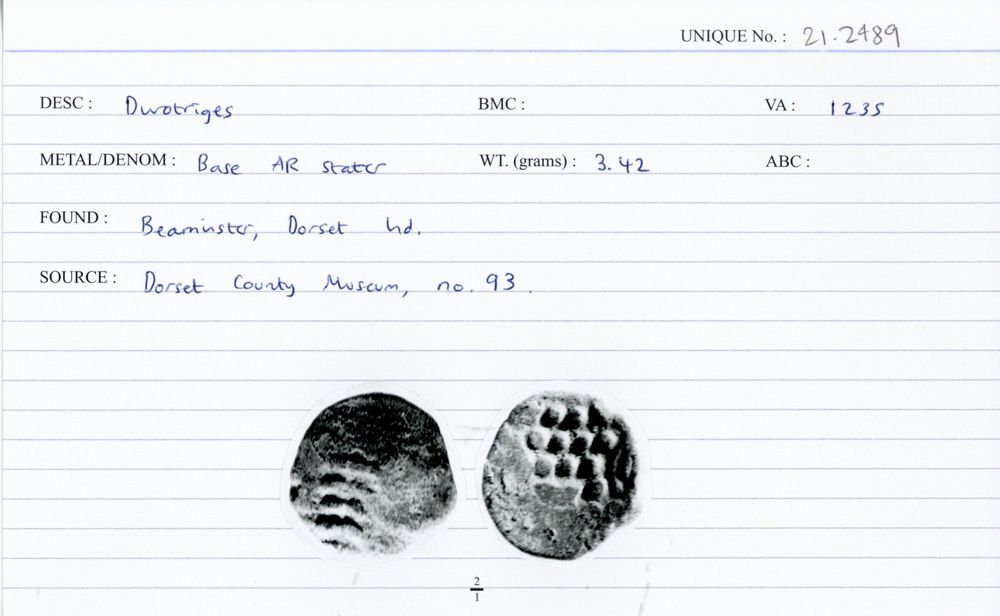 UNIQUE No. : 21.2489
DESC : Durotriges BMC : VA : 1235
METAL/DENOM : Base AR stater WT. (grams) : 3.42 ABC :
FOUND : Beaminster, Dorset hd.
SOURCE : Dorset County Museum, no. 93.
2
1